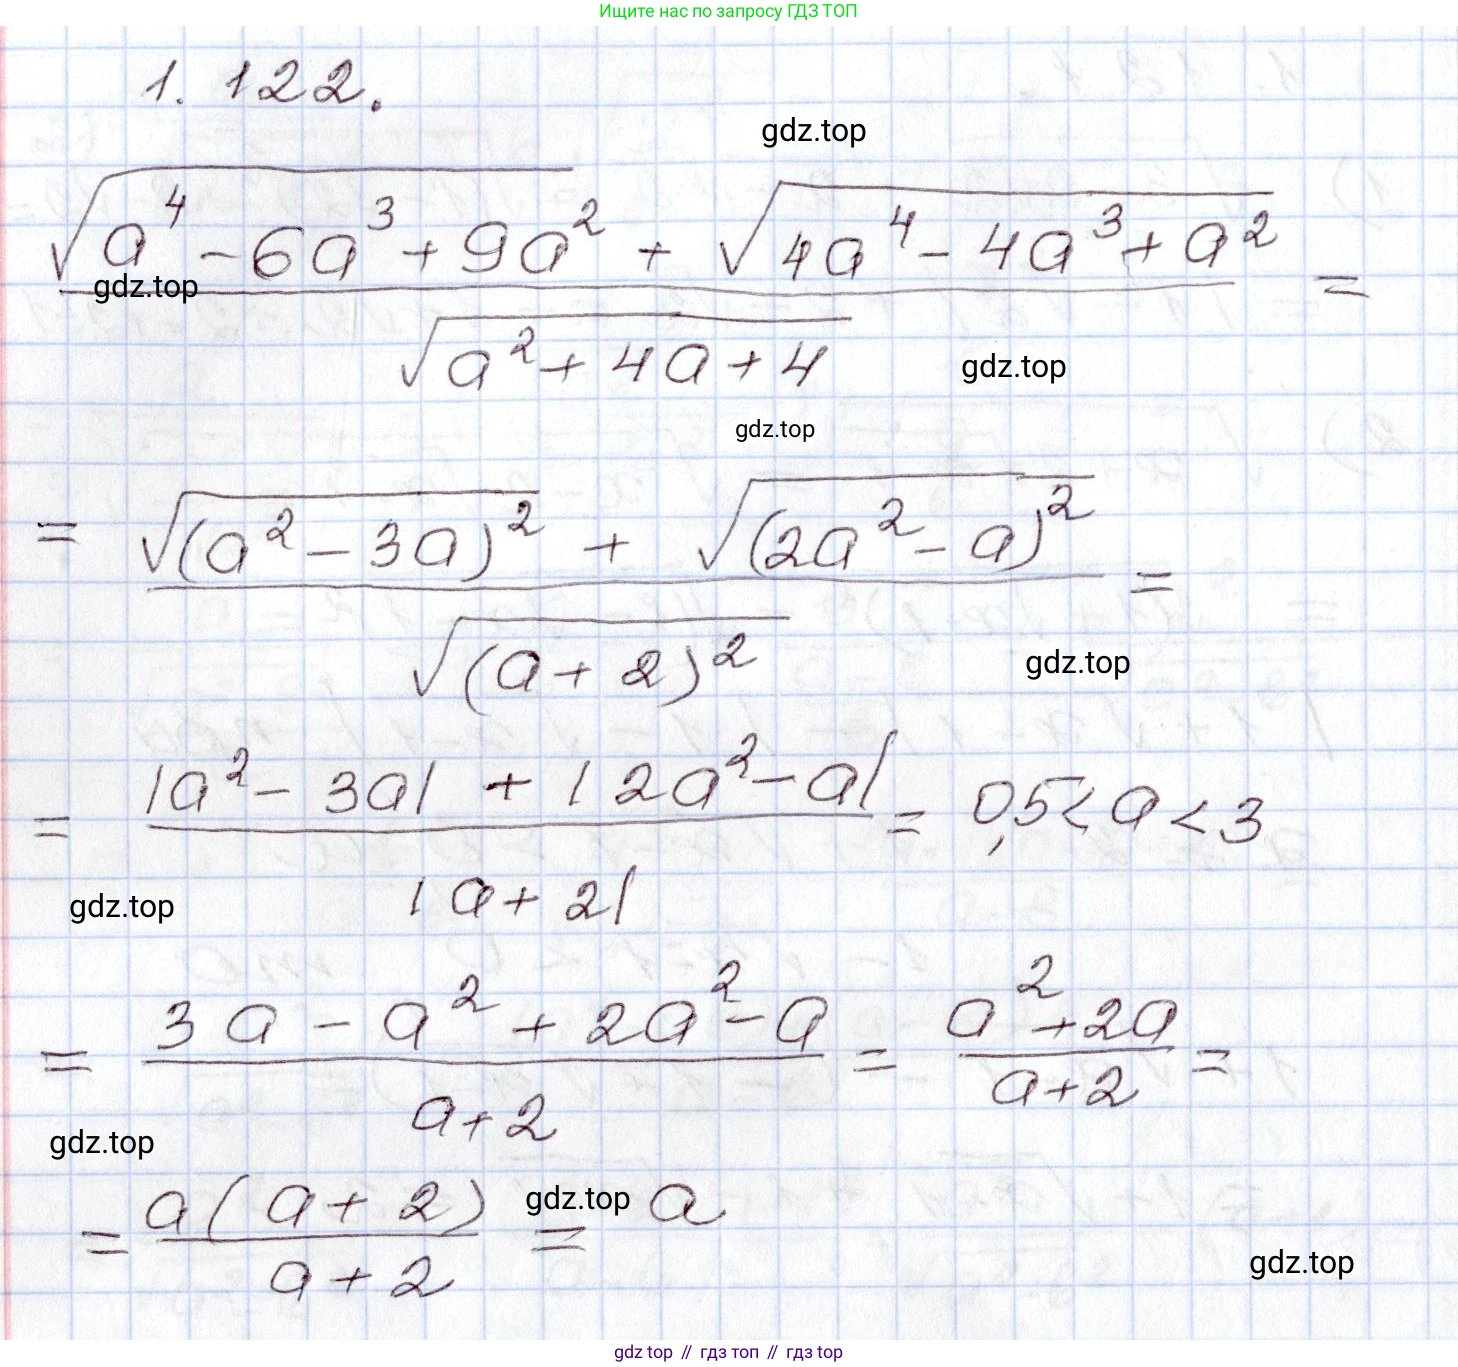 Ищите нас по запросу ГДЗ ТОП
1. 122.
gdz.top
√(a⁴ - 6a³ + 9a²) + √(4a⁴ - 4a³ + a²) =
gdz.top
√(a² + 4a + 4)
gdz.top
gdz.top
= √((a² - 3a)²) + √((2a² - a)²) =
√((a + 2)²)
gdz.top
= |a² - 3a| + |2a² - a| = 0,5 < a < 3
|a + 2|
gdz.top
= 3a - a² + 2a² - a = a² + 2a =
a + 2 a + 2
gdz.top
= a(a + 2) = a
gdz.top
a + 2
gdz.top
gdz top // гдз топ // гдз top